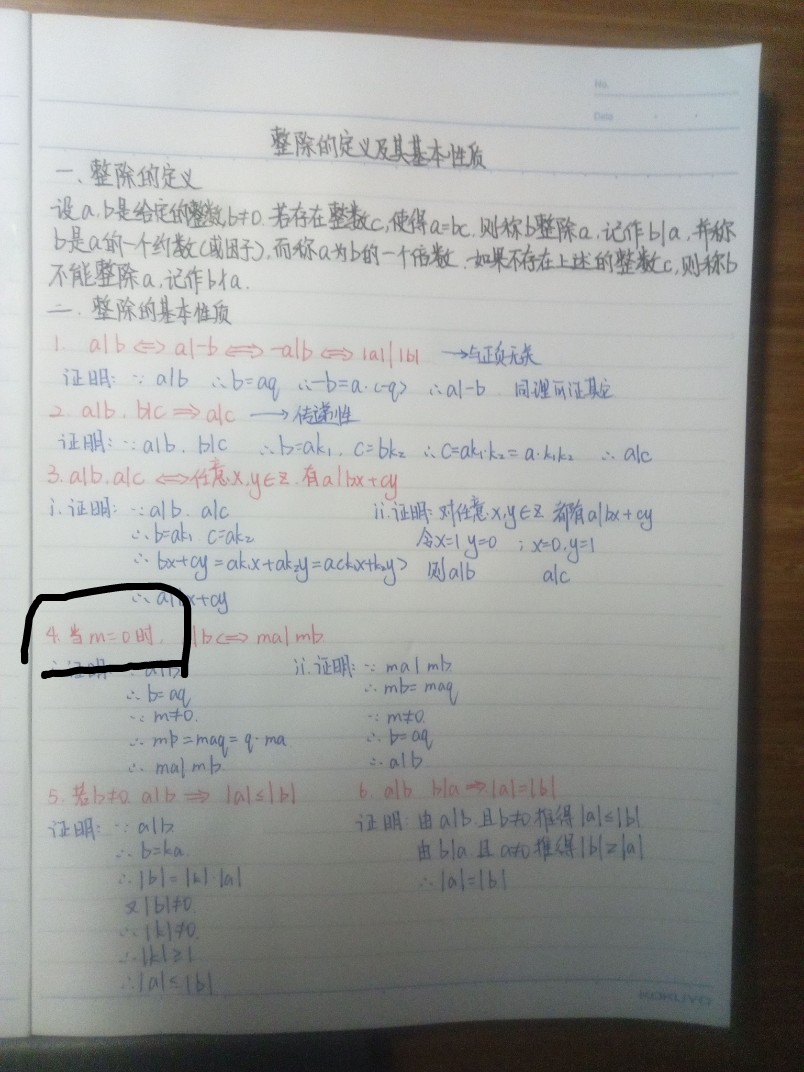 No.
Date
整除的定义及其基本性质
一、整除的定义
设a.b是给定的整数b≠0.若存在整数c,使得a=bc.则称b整除a,记作b|a,并称
b是a的一个约数(或因子),而称a为b的一个倍数.如果不存在上述的整数c,则称b
不能整除a,记作b∤a.
二.整除的基本性质
1. a|b⇔a|-b⇔-a|b⇔|a|||b| →与正负无关
证明:∵a|b ∴b=aq ∴-b=a·(-q) ∴a|-b 同理可证其它
2. a|b.b|c⇒a|c →传递性
证明:∵a|b.b|c ∴b=ak₁.c=bk₂ ∴c=ak₁·k₂=a·k₁k₂ ∴a|c
3.a|b.a|c⇔任意x,y∈z.有a|bx+cy
i.证明:∵a|b.a|c
∴b=ak₁ c=ak₂
∴bx+cy=ak₁x+ak₂y=a(k₁x+k₂y)
∴a|bx+cy
ii.证明:对任意x,y∈z 都有a|bx+cy
令x=1,y=0 ;x=0,y=1
则a|b a|c
4.当m=0时, |b⇔ma|mb
i.证明:∵a|b
∴b=aq
∵m≠0.
∴mb=maq=q·ma
∴ma|mb
ii.证明:∵ma|mb
∴mb=maq
∵m≠0.
∴b=aq
∴a|b
5.若b≠0.a|b⇒|a|≤|b|
证明:∵a|b
∴b=ka
∴|b|=|k|·|a|
又|b|≠0
∴|k|≠0.
∴|k|≥1
∴|a|≤|b|
6. a|b b|a⇒|a|=|b|
证明:由a|b.且b≠0推得|a|≤|b|
由b|a.且a≠0推得|b|≥|a|
∴|a|=|b|
KOKUYO